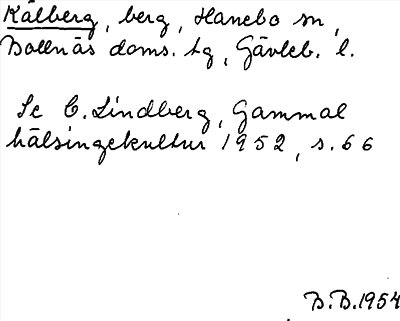 Kålberg, berg, Hanebo sn,
Bollnäs doms. tg, Gävleb. l.
Se C. Lindberg, Gammal
hälsingekultur 1952, s. 66
B.B. 1954